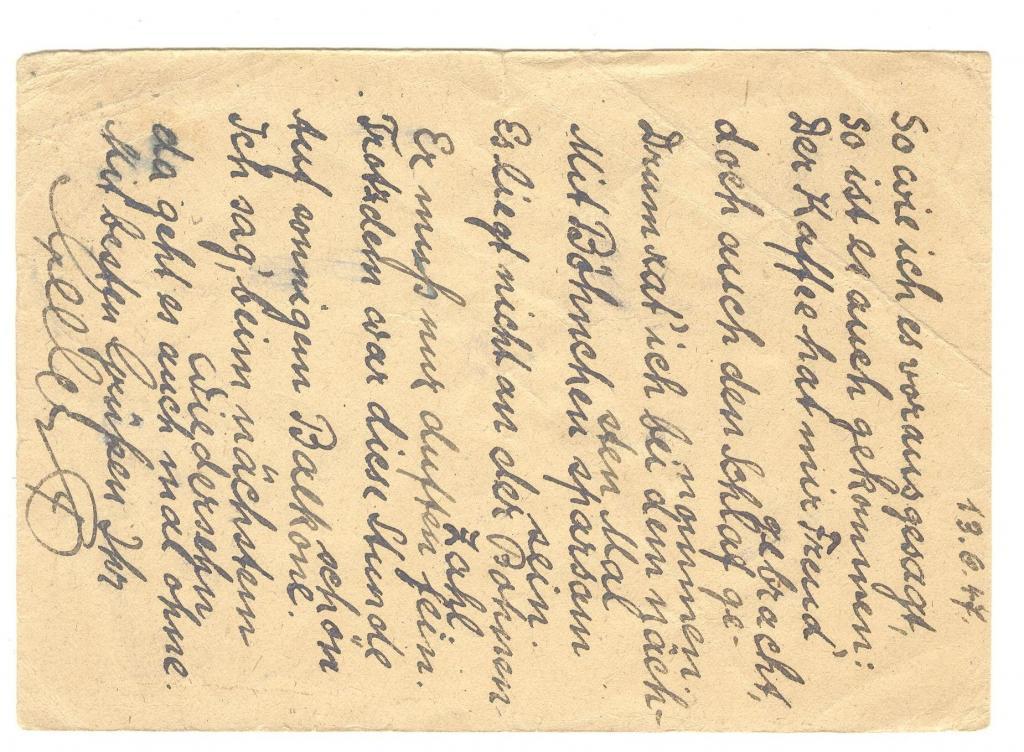 13.6.47.
So wie ich es vorausgesagt,
so ist es auch gekommen:
Der Kaffee hat mir Freud'
gebracht,
doch auch den Schlaf ge-
nommen.
Drum rat' ich bei dem näch-
sten Mal
Mit Böhnchen sparsam
sein.
Es liegt nicht an der Bohnen
Zahl
Er muß nur duften fein.
Trotzdem war diese Stunde
schön
Auf sonnigem Balkone.
Ich sag', beim nächsten
Wiedersehn
da geht es auch mal ohne.
Mit besten Grüßen Ihr